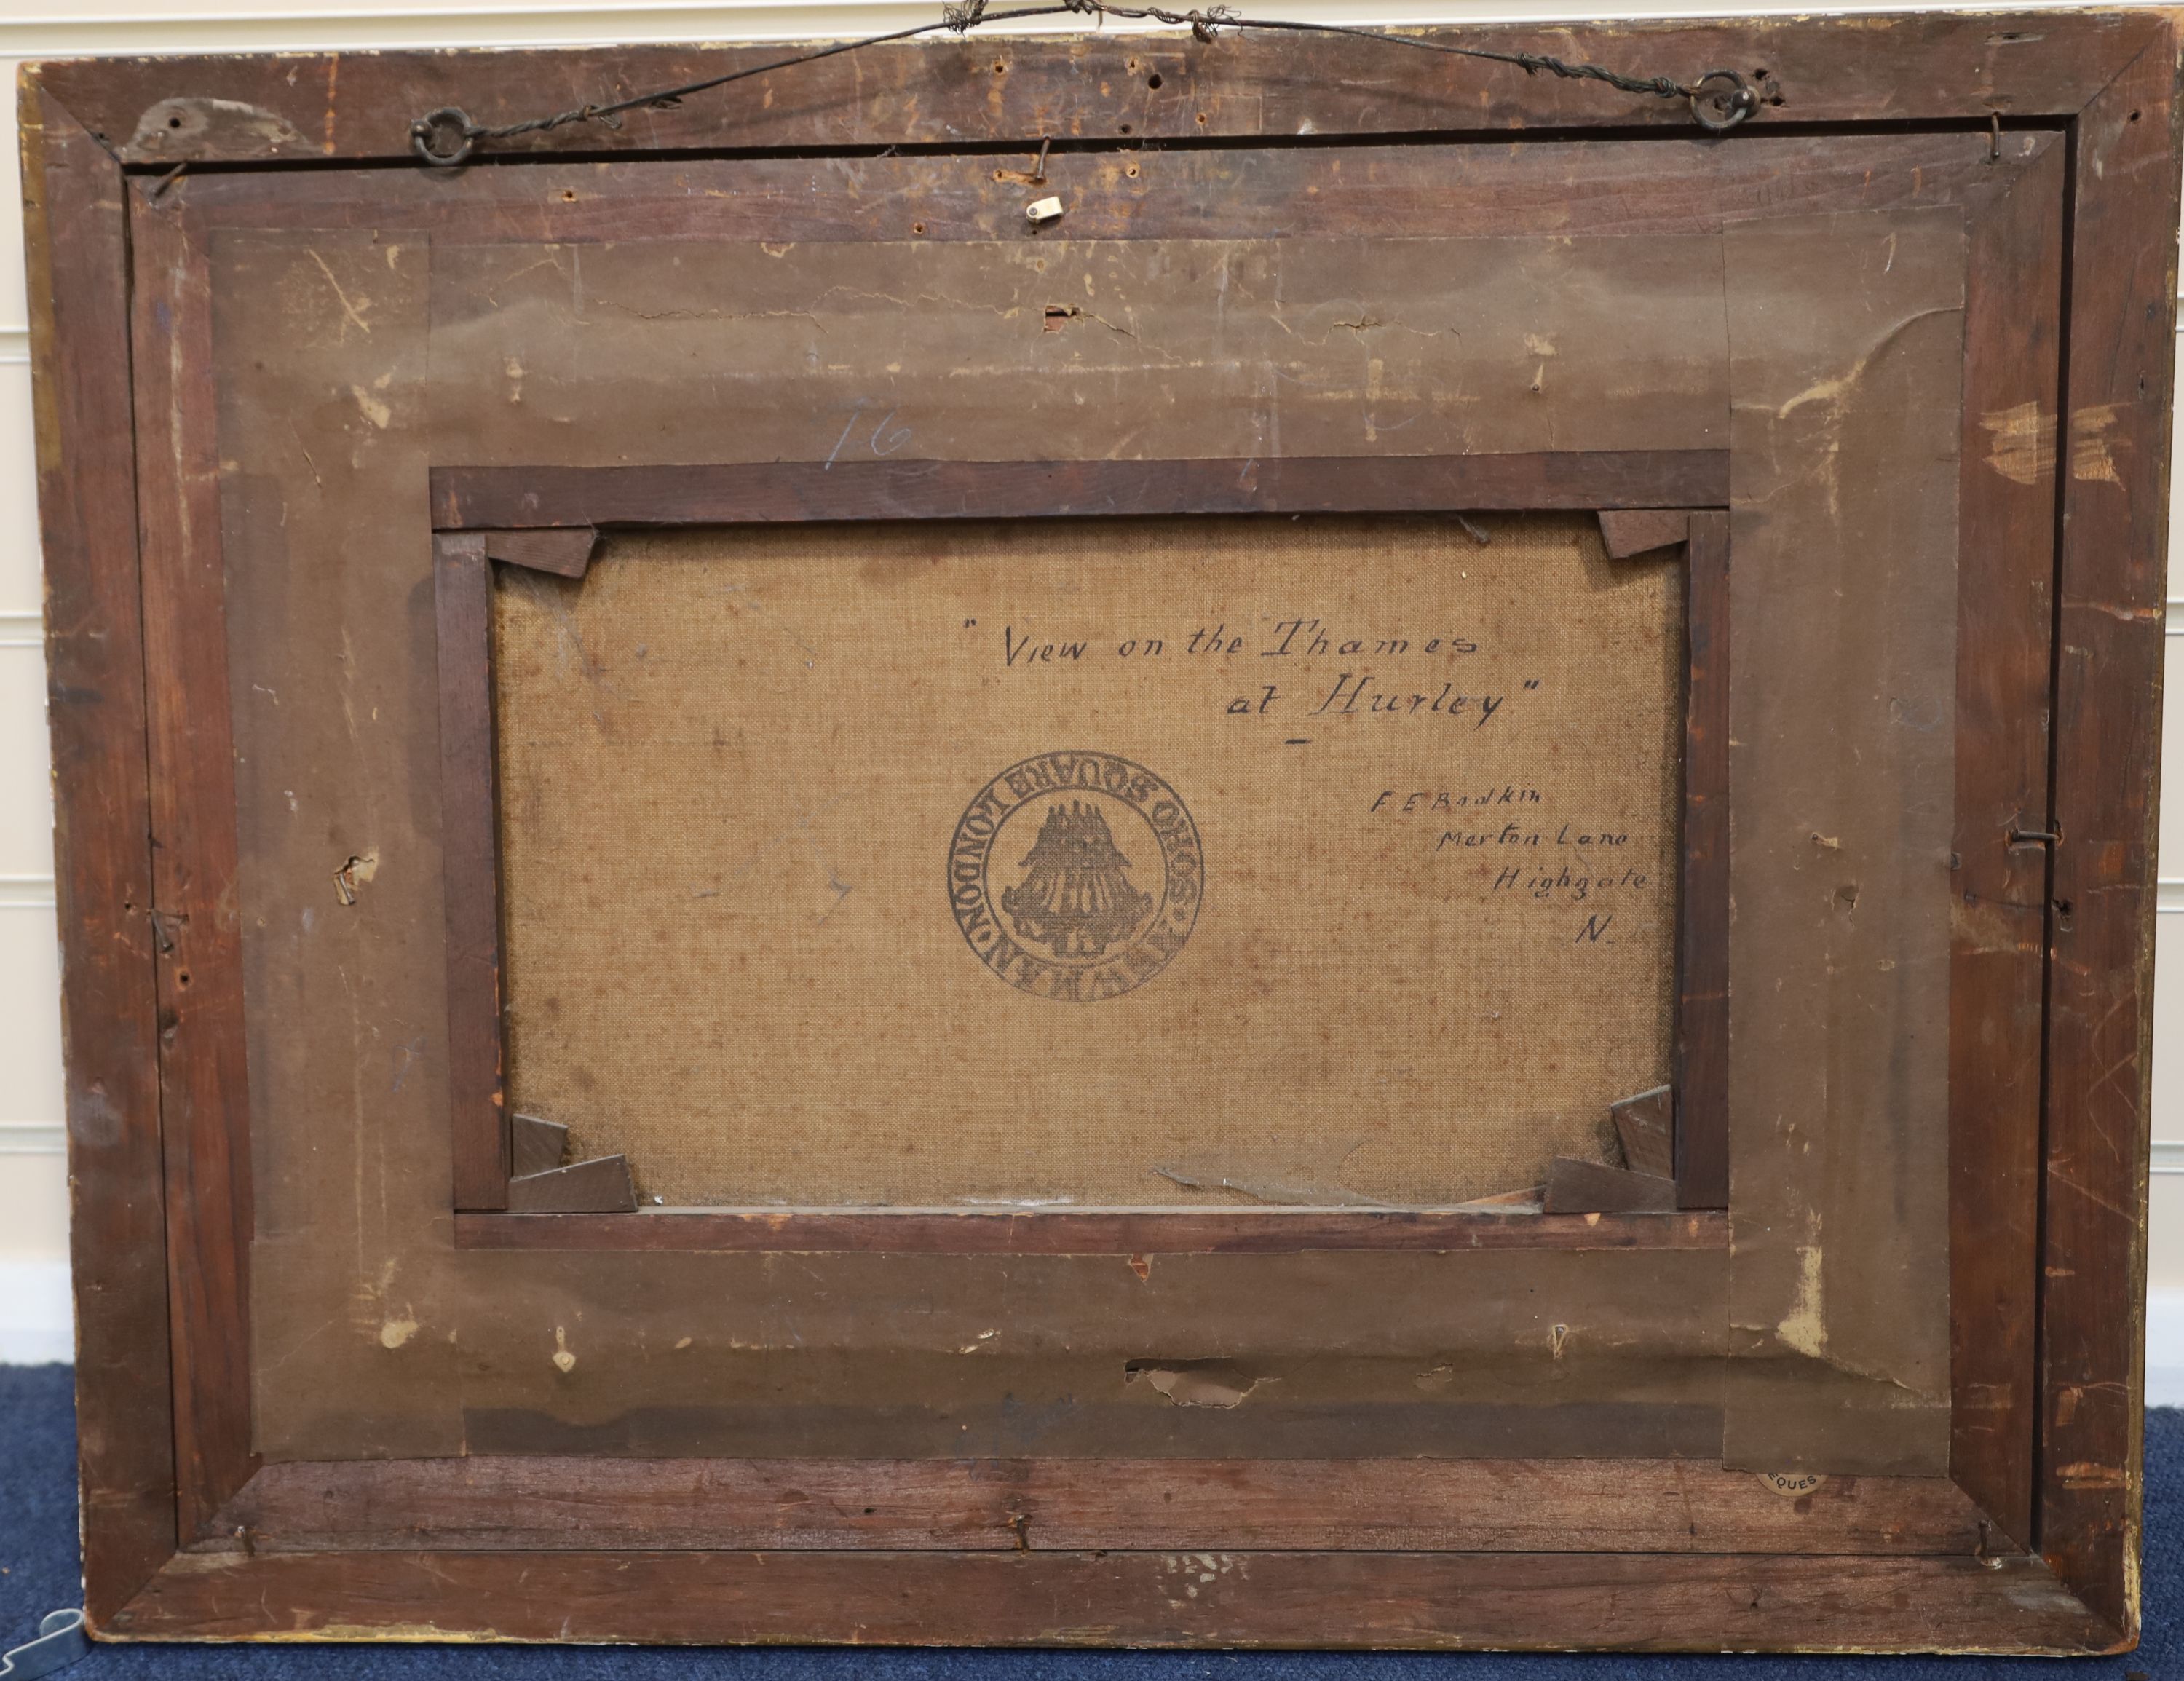 16
" View on the Thames
at Hurley"
F E Bodkin
Merton Lane
Highgate
N.
NEWMAN · SOHO SQUARE LONDON ·
QUES